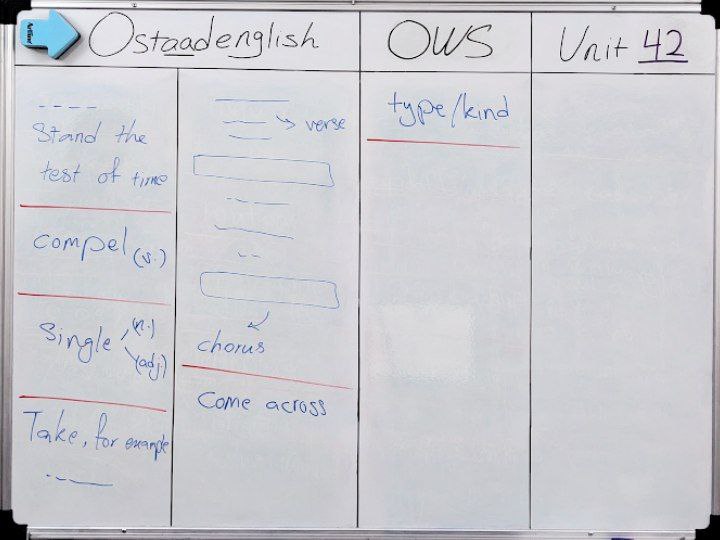 Artline
Ostaadenglish
OWS
Unit 42
Stand the
test of time
compel (v.)
Single (n.)
(adj.)
Take, for example
verse
chorus
Come across
type/kind